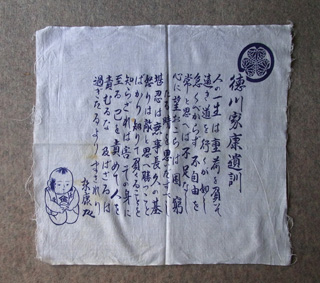 徳川家康遺訓
人の一生は重荷を負て
遠き道を行くが如し
急ぐべからず不自由を
常と思へば不足なし
心に望おこらば困窮
したる時を思ひ出すべし
堪忍は無事長久の基
怒りは敵と思へ勝つことを
ばかり知りて負くることを
知らざれば害其の身に
至る己を責めて人を
責むるな及ばざるは
過ぎたるよりまされり